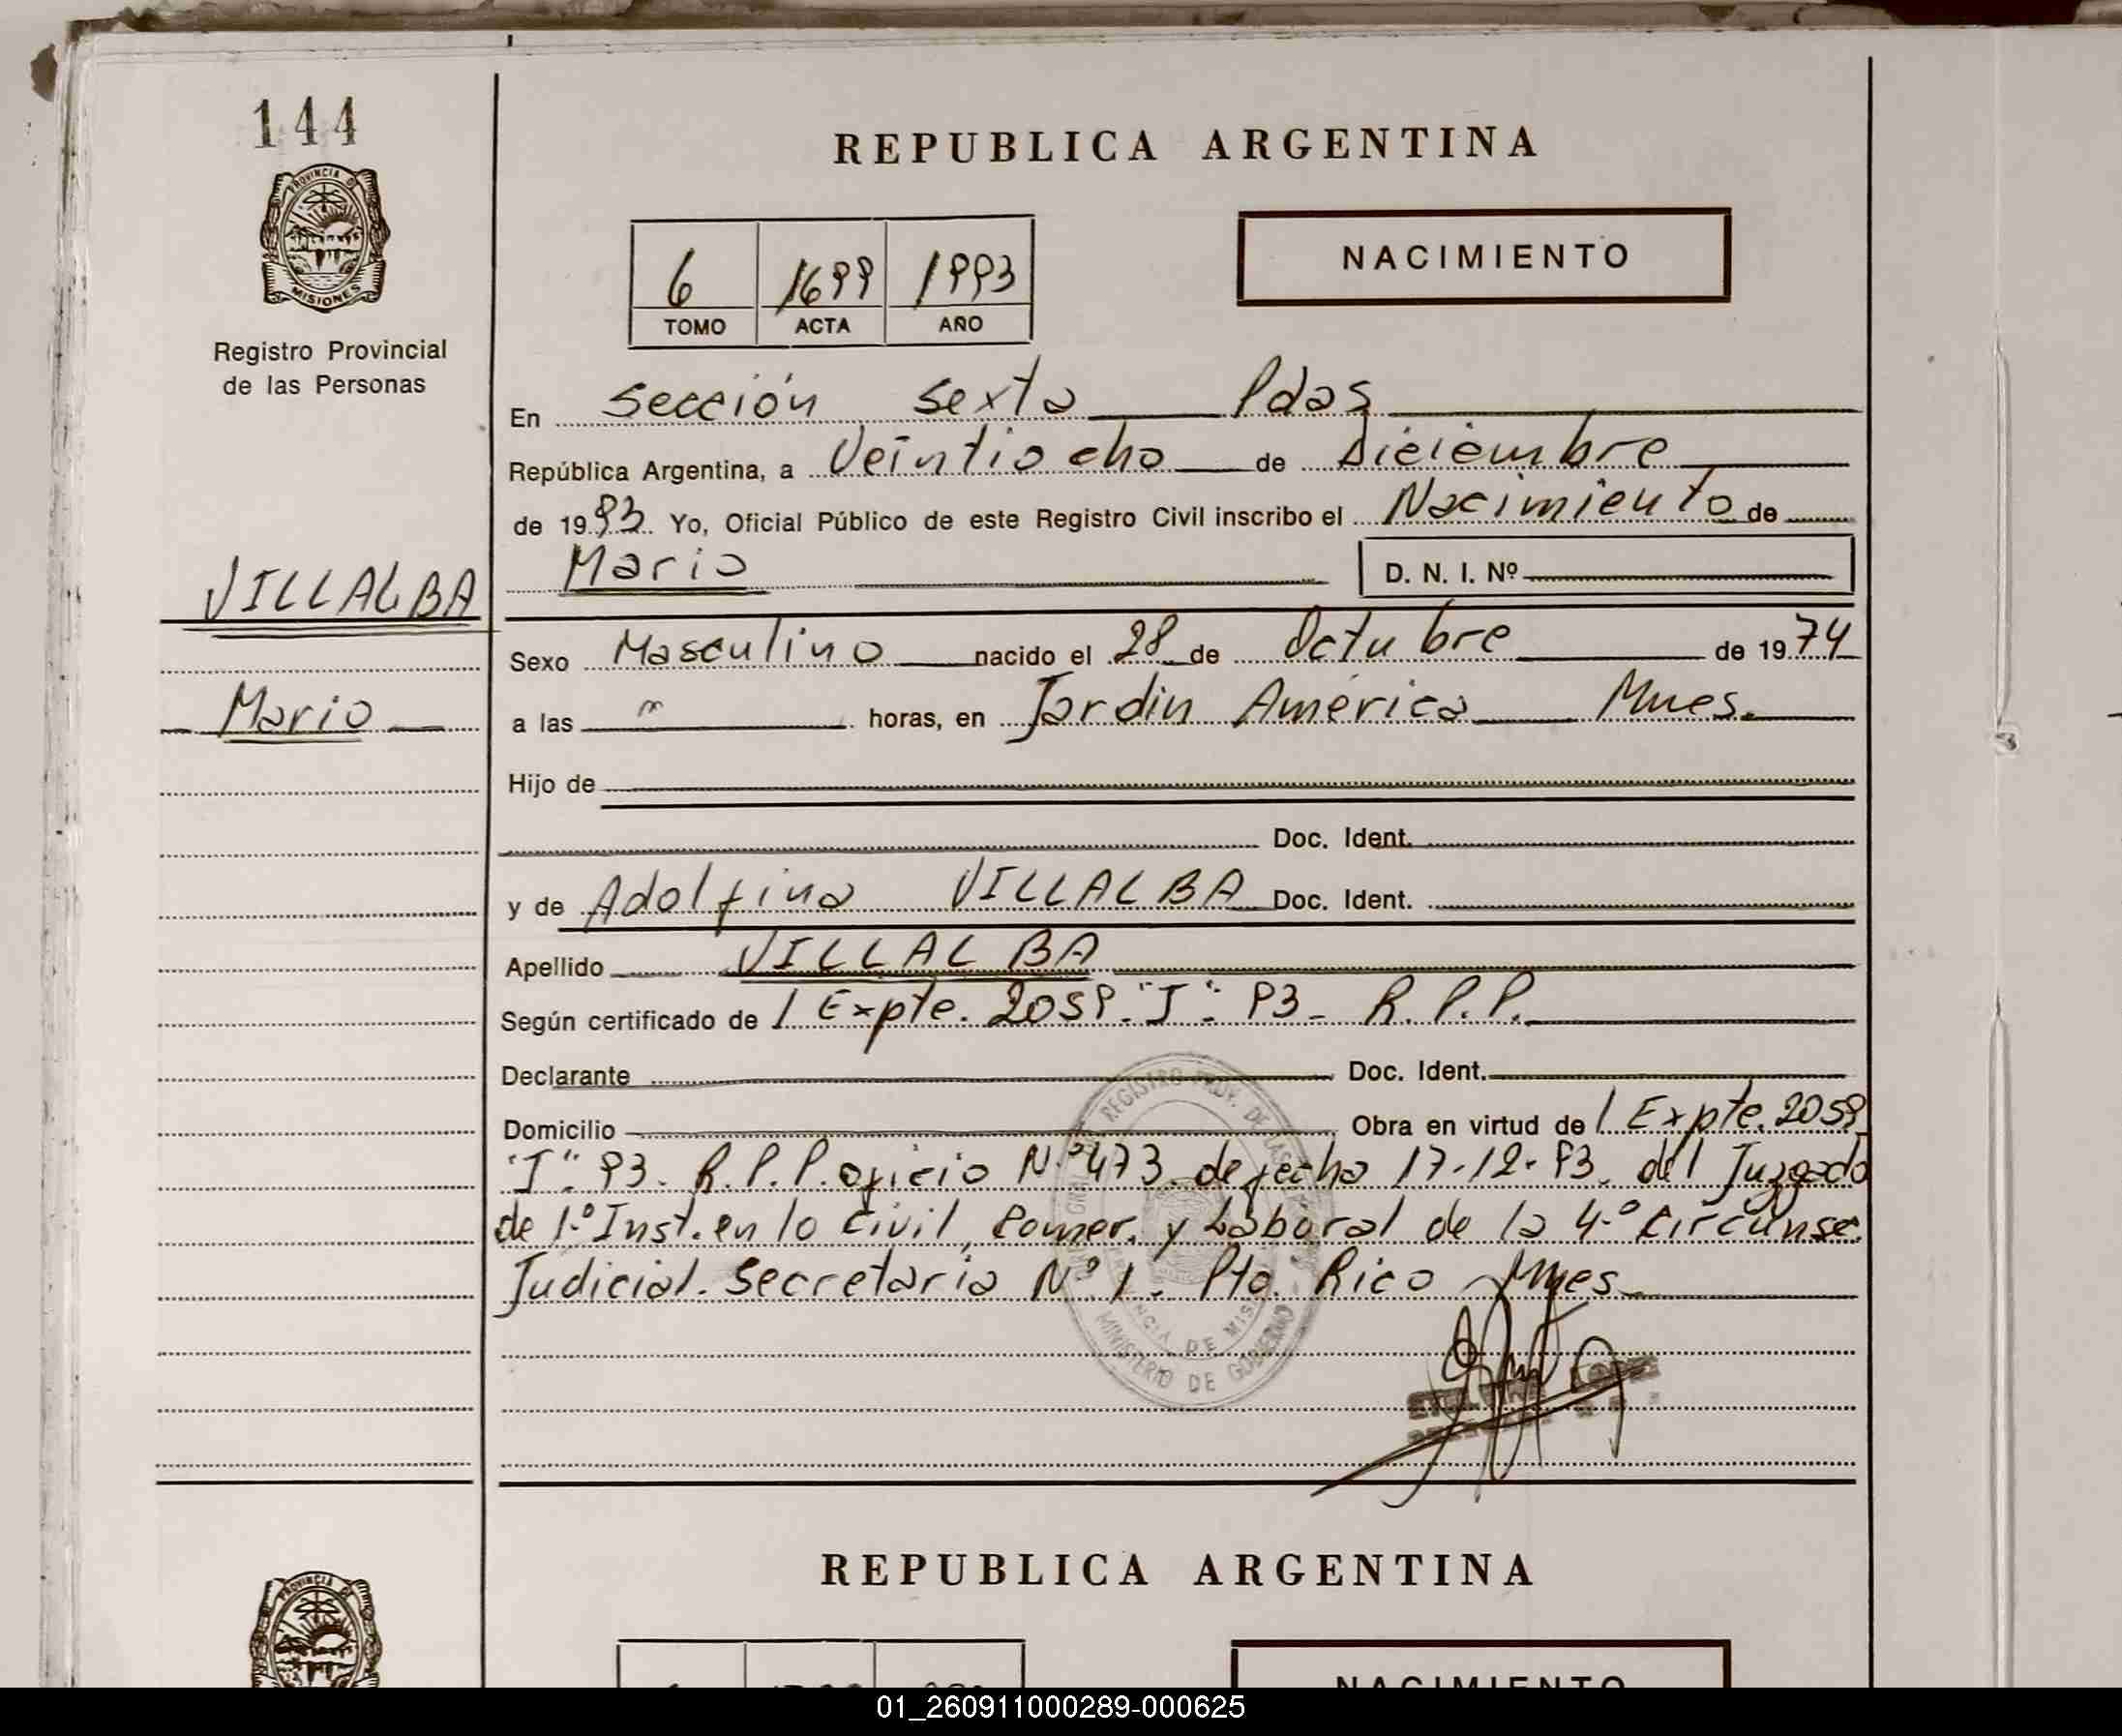 144
PROVINCIA DE
MISIONES
Registro Provincial
de las Personas
VILLALBA
Mario
REPUBLICA ARGENTINA
6 1699 1993
TOMO ACTA AÑO
NACIMIENTO
En Sección Sexta Pdas
República Argentina, a Veintiocho de Diciembre
de 1993 Yo, Oficial Público de este Registro Civil inscribo el Nacimiento de
Mario D. N. I. Nº
Sexo Masculino nacido el 28 de Octubre de 1974
a las horas, en Jardin América Mnes.
Hijo de
Doc. Ident.
y de Adolfina VILLALBA Doc. Ident.
Apellido VILLALBA
Según certificado de / Expte. 2059. "I". 93- R.P.P.
Declarante Doc. Ident.
Domicilio Obra en virtud de / Expte. 2059
"I". 93. R.P.P. oficio N.º 473 de fecha 17-12-93. del Juzgado
de 1.º Inst. en lo Civil, Comer. y Laboral de la 4.º Circunsc.
Judicial. Secretaria Nº 1. Pto. Rico Mnes
REGISTRO PROV. DE LAS
MINISTERIO DE GOBIERNO
LOPEZ
REPUBLICA ARGENTINA
PROVINCIA DE
NACIMIENTO
01_260911000289-000625